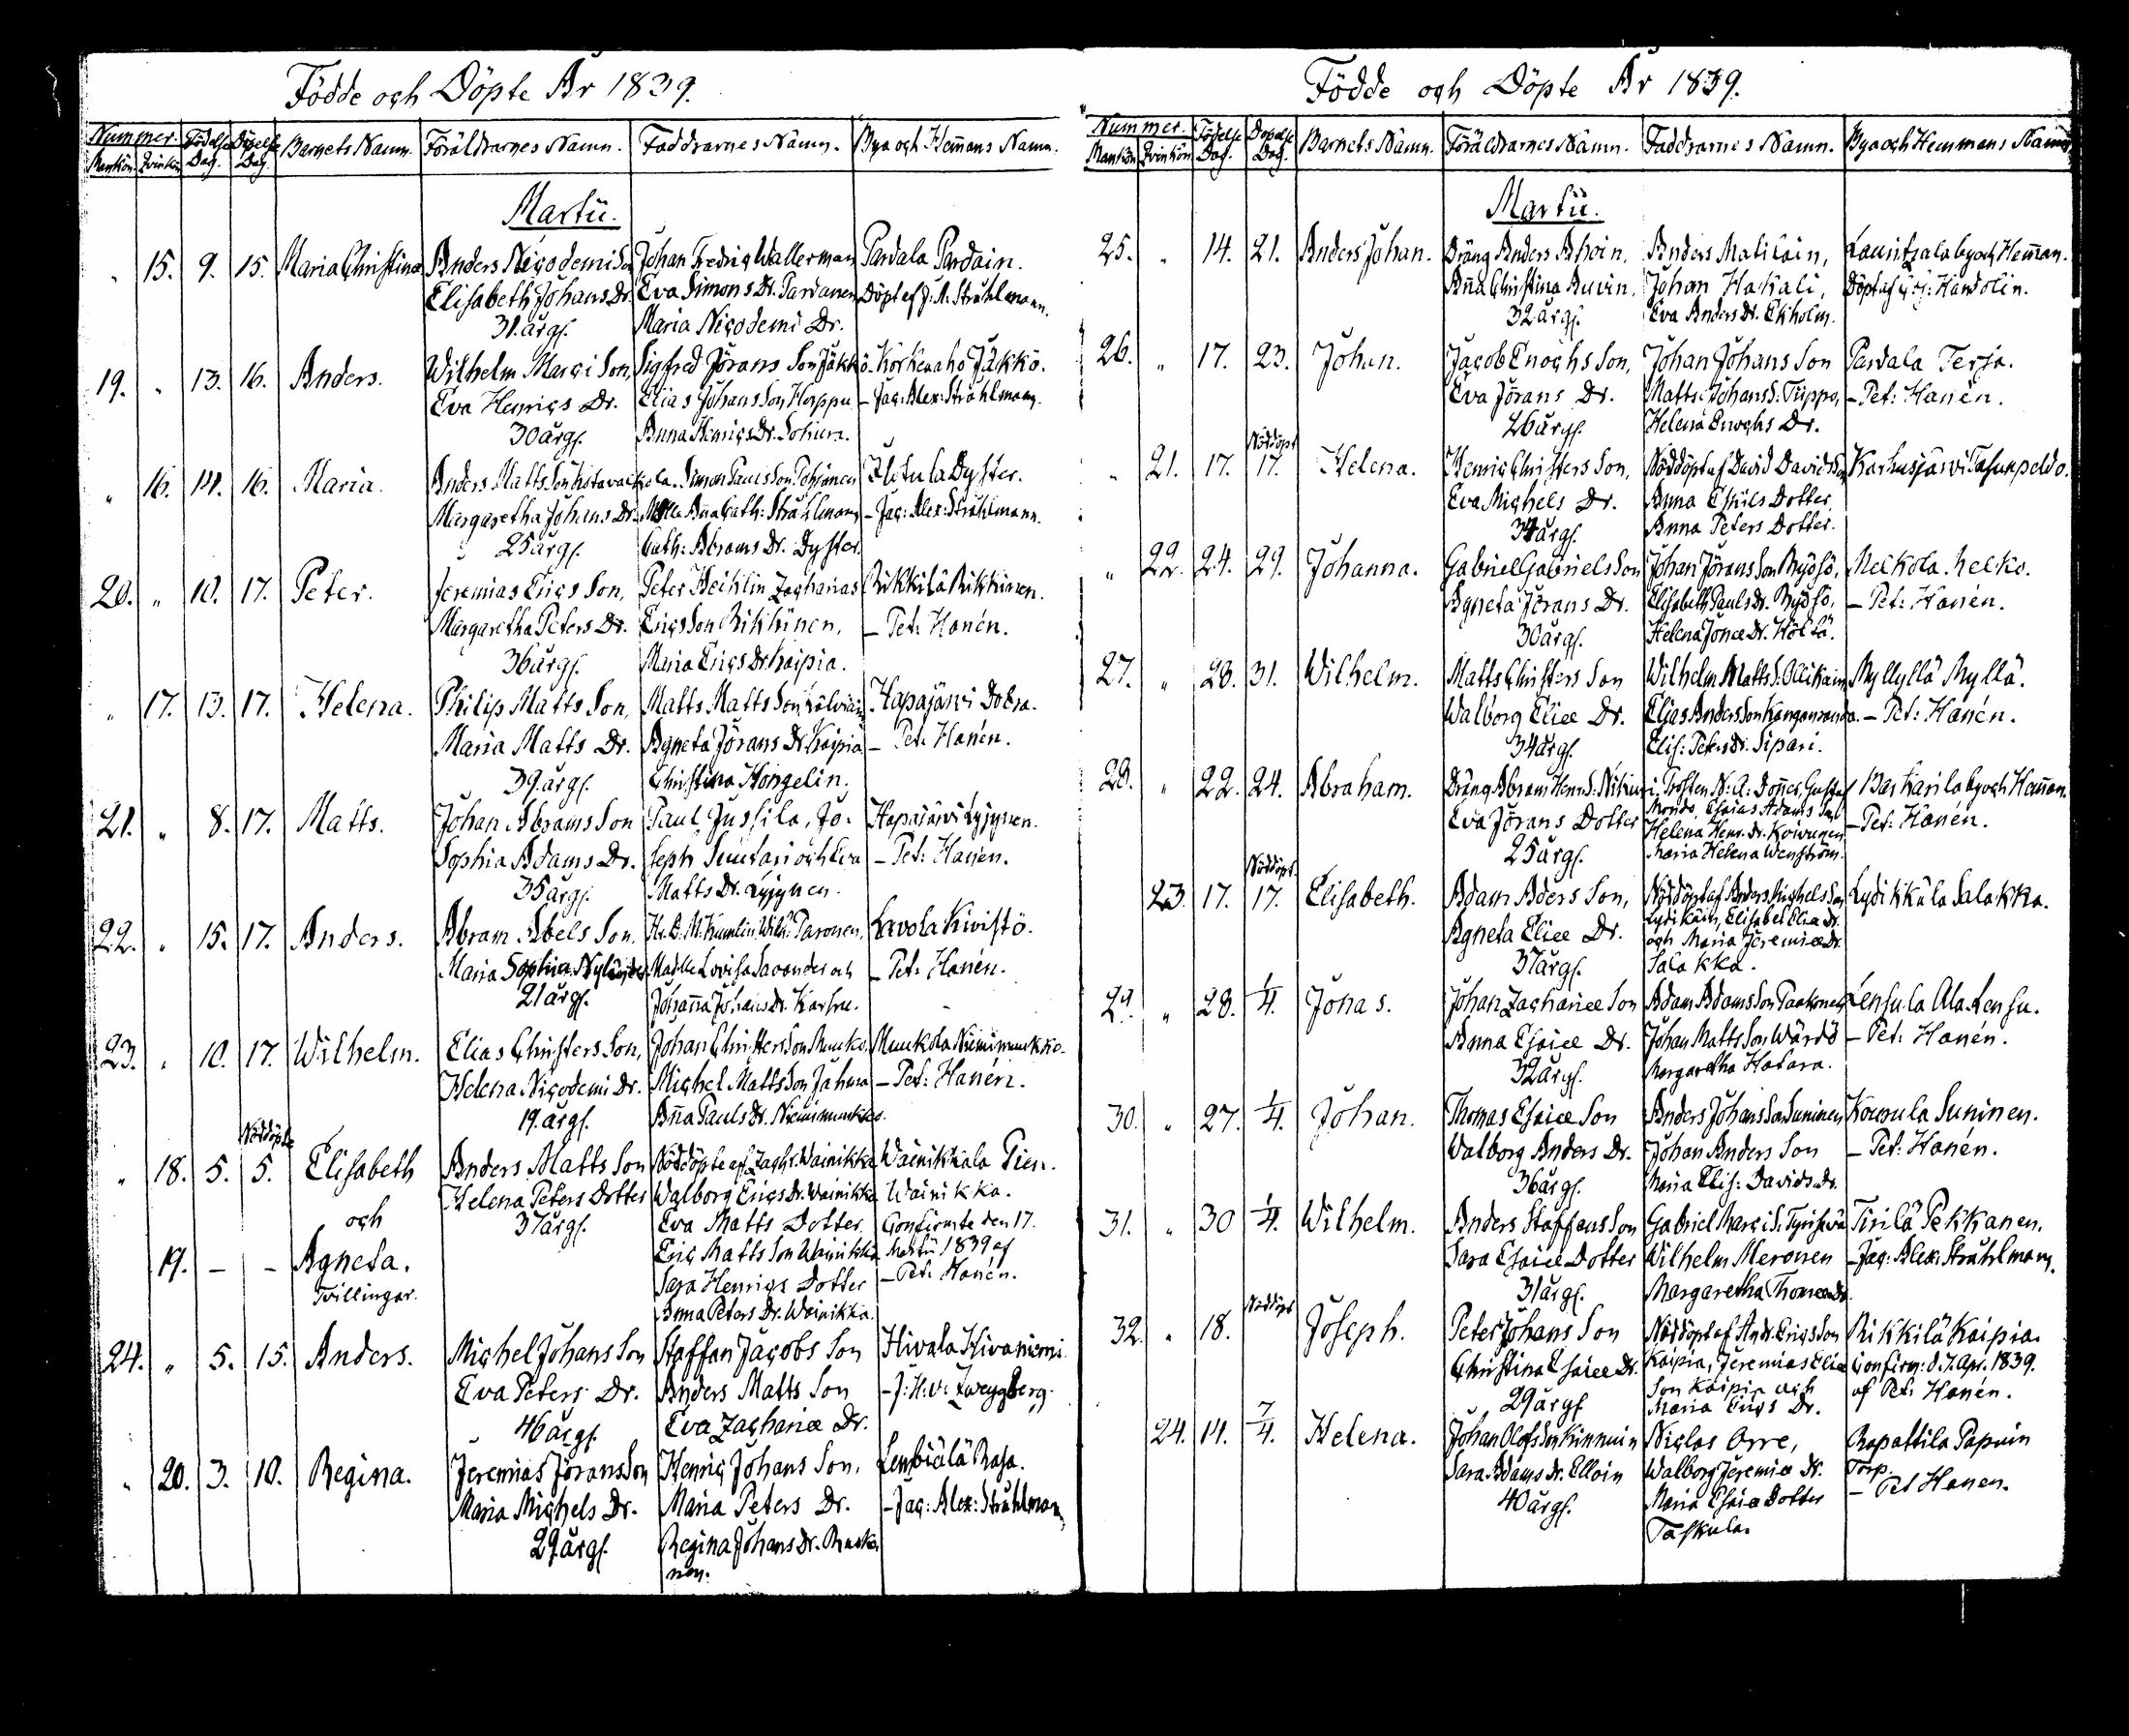 Födde och Döpte År 1839.
Nummer. Födelse Döpelse Barnets Namn. Föräldrarnes Namn. Faddrarnes Namn. Bya och Hem̄ans Namn.
Mankön. Qvinkön Dag. Dag.
Martii.
„ 15. 9. 15. Maria Christina Anders Nicodemi Son Johan Fredric Wallerman Pardala Pardain.
Elisabeth Johans Dr. Eva Simons Dr. Pardanen Döpt af J. A. Stråhlmann.
31 årg. Maria Nicodemi Dr.
19. „ 13. 16. Anders. Wilhelm Marci Son, Sigfred Jörans Son Jäkkö Korkeaho Jäkkö.
Eva Henrics Dr. Elias Johans Son Horppu – Jac: Alex: Stråhlmann.
30 årg. Anna Henrics Dr.
„ 16. 14. 16. Maria. Anders Matts Son Simon Pauls Son Pohjonen Dyster.
Margaretha Johans Dr. Mslle Ān̄a Cath: Stråhlmann – Jac: Alex: Stråhlmann.
25 årg. Cath: Abrams Dr. Dyster.
20. „ 10. 17. Peter. Jeremias Erics Son, Peter Zacharias Rikkilä Rikkinen.
Margaretha Peters Dr. Erics Son Rikkinen, – Pet: Hanén.
36 årg. Maria Erics Dr. Kaipia.
„ 17. 13. 17. Helena. Philip Matts Son, Matts Matts Son Hapajärvi Dobra.
Maria Matts Dr. Agneta Jörans Dr. Kaipia – Pet: Hanén.
39 årg. Christina Hongelin.
21. „ 8. 17. Matts. Johan Abrams Son Paul Jussila, Jo- Hapajärvi Lyjynen.
Sophia Adams Dr. seph Suutari och Eva – Pet: Hanén.
35 årg. Matts Dr. Lyjynen.
22. „ 15. 17. Anders. Abram Abels Son, Wilh: Paronen, Lavola Kivistö.
Maria Sophia Nylander Madlle Lovisa Savander och – Pet: Hanén.
21 årg. Johan̄a Johans Dr. Karhu.
23. „ 10. 17. Wilhelm. Elias Christers Son, Johan Christers Son Munko. Munkola Nieminunkko.
Helena Nicodemi Dr. Michel Matts Son Jahma – Pet: Hanén.
19 årg. An̄a Pauls Dr.
Nöddöpte
„ 18. 5. 5. Elisabeth Anders Matts Son Nöddöpte af Zachr. Wainikka Wainikkala Pien
och Helena Peters Dotter Walborg Erics Dr. Wainikka Wainikka.
37 årg. Eva Matts Dotter. Confirmte den 17.
19. – – Agneta. Eric Matts Son Wainikka Martii 1839 af
Tvillingar. Sara Henrics Dotter – Pet: Hanén.
Anna Peters Dr. Wainikka.
24. „ 5. 15. Anders. Michel Johans Son Staffan Jacobs Son Hivala Hivaniemi.
Eva Peters Dr. Anders Matts Son – J: H: v: Zweygberg.
46 årg. Eva Zachariæ Dr.
„ 20. 3. 10. Regina. Jeremias Jörans Son Henric Johans Son. Lembiälä Rasa.
Maria Michels Dr. Maria Peters Dr. – Jac: Alex: Stråhlmann,
29 årg. Regina Johans Dr. Ruoka
nen.
Födde och Döpte År 1839.
Nummer. Födelse Döpelse Barnets Namn. Föräldrarnes Namn. Faddrarnes Namn. Bya och Hemmans Namn
Mankön Qvinkön Dag. Dag.
Martii.
25. „ 14. 21. Anders Johan. Dräng Anders Ahoin, Anders Matilain, Lauritsala by och Hem̄an.
An̄a Christina Auvin. Johan Hakali, Döpt af Handolin.
32 årg. Eva Anders Dr. Ekholm.
26. „ 17. 23. Johan. Jacob Enochs Son, Johan Johans Son Pardala Terja.
Eva Jörans Dr. Matts Johans S. Tiippo, – Pet: Hanén.
26 årg. Helena Enochs Dr.
Nöddöpt
„ 21. 17. 17. Helena. Henric Christers Son, Nöddöpt af David Davids Son Karhusjärvi
Eva Michels Dr. Anna Eskils Dotter.
34 årg. Anna Peters Dotter.
„ 22. 24. 29. Johanna. Gabriel Gabriels Son Johan Jörans Son Rydsö, Melkola Melko.
Agneta Jörans Dr. Elisabeth Pauls Dr. Rydsö, – Pet: Hanén.
30 årg. Helena Jonæ Dr. Höltä.
27. „ 28. 31. Wilhelm. Matts Christers Son Wilhelm Matts S. Ollikain Myllylä Myllä.
Walborg Eliæ Dr. Elias Anders Son Kanganranda. – Pet: Hanén.
34 årg. Elis: Peters Dr. Sipari.
28. „ 22. 24. Abraham. Dräng Abram Henr. S. Nikuri. Prosten N. A. Doñer, Gustaf Baskarila by och Hem̄an.
Eva Jörans Dotter Esaias Adams Son – Pet: Hanén.
25 årg. Helena Henr. Dr. Koivunen
Maria Helena Wenström.
Nöddöpt
23. 17. 17. Elisabeth. Adam Aders Son, Nöddöpt af Anders Michels Son Lydikkälä Salakka.
Agneta Eliæ Dr. Lydikäin, Elisabet Eliæ Dr.
37 årg. och Maria Jeremiæ Dr.
Salakka.
29. „ 28. 1/4. Jonas. Johan Zachariæ Son Adam Adams Son Paakonen Lensula Ala Lensu.
Anna Esaiæ Dr. Johan Matts Son Wärdö – Pet: Hanén.
32 årg. Margaretha Hatara.
30. „ 27. 1/4. Johan. Thomas Esaiæ Son Anders Johans Son Suninen Kourula Suninen.
Walborg Anders Dr. Johan Anders Son – Pet: Hanén.
36 årg. Maria Elis: Davids Dr.
31. „ 30 1/4. Wilhelm. Anders Staffans Son Gabriel Marci S. Tirilä Pekkanen.
Sara Esaiæ Dotter Wilhelm Meronen – Jac: Alex: Stråhlmann.
31 årg. Margaretha Thomæ Dr.
Nöddöpt
32. „ 18. Joseph. Peter Johans Son Nöddöpt af Andr. Erics Son Rikkilä Kaipia.
Christina Esaiæ Dr. Kaipia, Jeremias Eliæ Confirm: d. 7. Apr. 1839.
29 årg Son Kaipia och af Pet: Hanén.
Maria Erics Dr.
24. 14. 7/4. Helena. Johan Olofs Son Kinnuin Niclas Orre, Rapattila Papuin
Sara Adams Dr. Elloin Walborg Jeremiæ Dr. Torp.
40 årg. Maria Esaiæ Dotter – Pet Hanen.
Taskula.